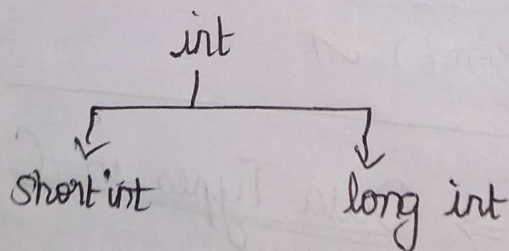 int
short int
long int